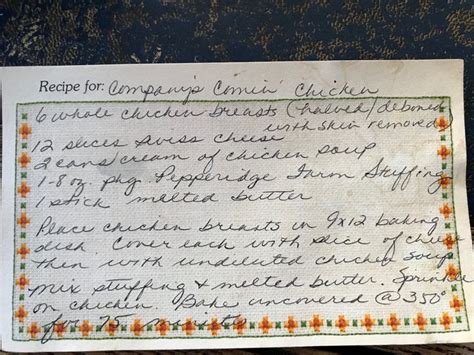 Recipe for: Company's Comin' Chicken
6 whole chicken breasts (halved/deboned
with skin removed)
12 slices swiss cheese
2 cans/cream of chicken soup
1-8 oz. pkg. Pepperidge Farm Stuffing
1 stick melted butter
Place chicken breasts in 9x12 baking
dish. Cover each with slice of cheese
then with undiluted chicken soup
mix stuffing & melted butter. Sprinkle
on chicken. Bake uncovered @ 350°
for 75 minutes